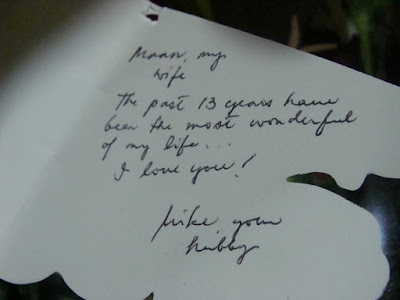 Maan, my
wife
The past 13 years have
been the most wonderful
of my life...
I love you!
Mike your
hubby